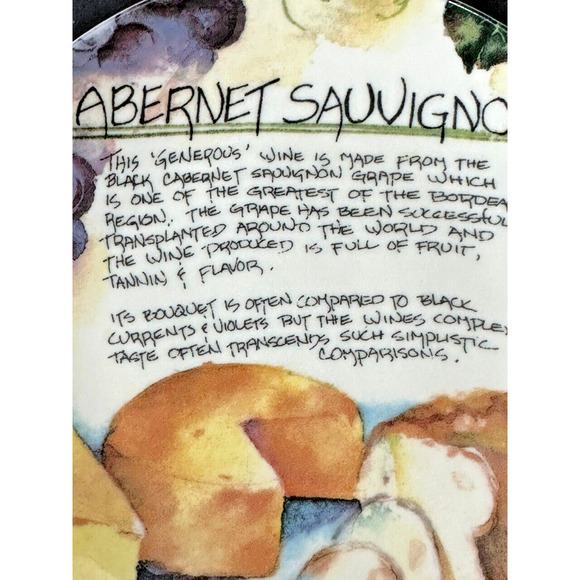 ABERNET SAUVIGNO
THIS 'GENEROUS' WINE IS MADE FROM THE
BLACK CABERNET SAUVIGNON GRAPE WHICH
IS ONE OF THE GREATEST OF THE BORDEA
REGION. THE GRAPE HAS BEEN SUCCESSFUL
TRANSPLANTED AROUND THE WORLD AND
THE WINE PRODUCED IS FULL OF FRUIT,
TANNIN & FLAVOR.
ITS BOUQUET IS OFTEN COMPARED TO BLACK
CURRENTS & VIOLETS BUT THE WINES COMPLEX
TASTE OFTEN TRANSCENDS SUCH SIMPLISTIC
COMPARISONS.